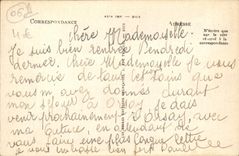 CORRESPONDANCE
ADRESSE
N'écrire que
sur le côté
réservé à la
correspondance
Chère Mademoiselle
Je suis bien rentré vendredi
dernier. Chère Mademoiselle je vous
remercie de tous les soins que
vous m'avez donnés durant
mon séjour à Orsay, je dois
venir prochainement à Orsay, avec
ma voiture, en attendant de
vous faire une plus longue lettre
je vous embrasse bien fort